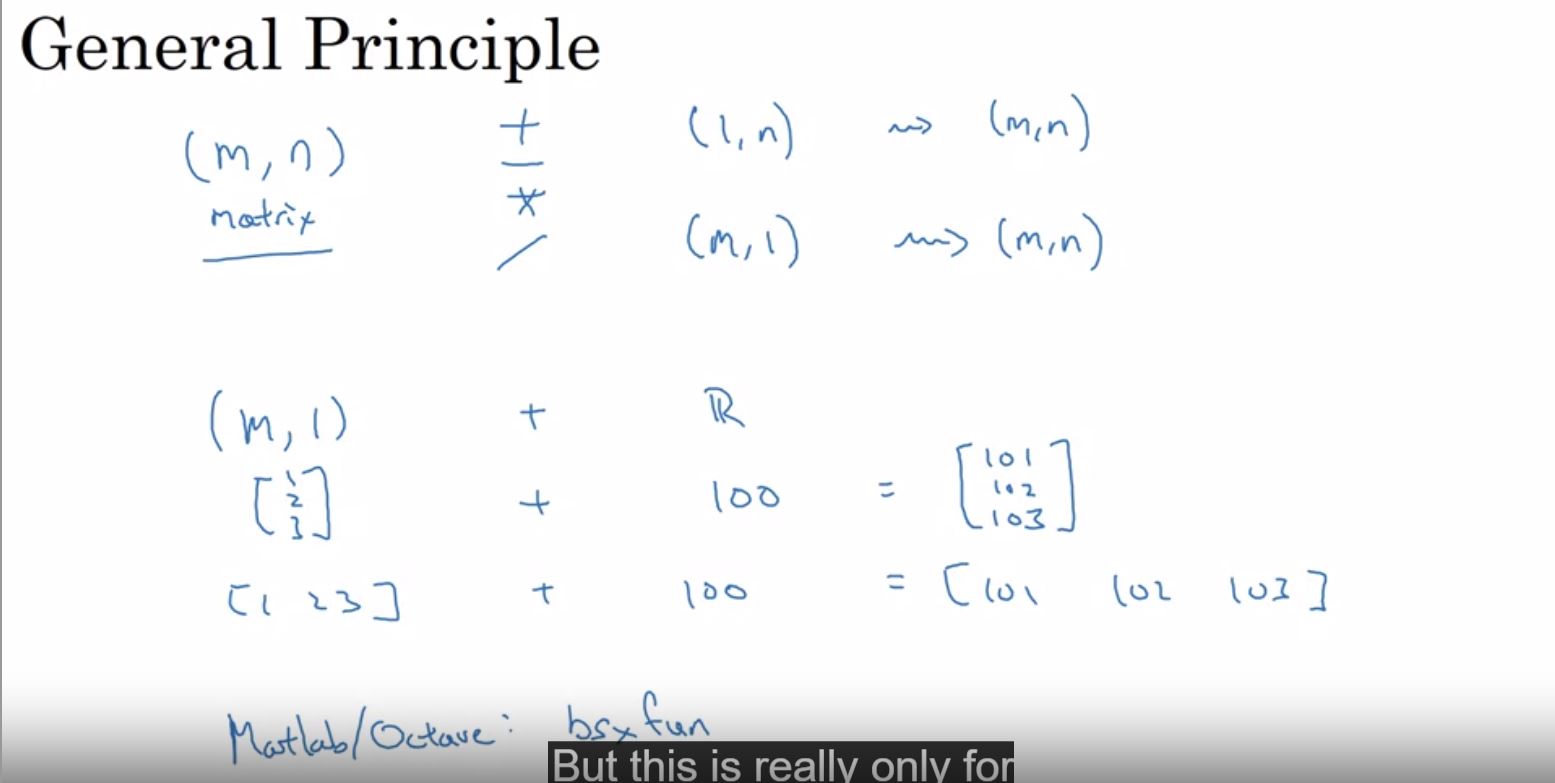 General Principle
(m, n) + (1, n) ⇝ (m, n)
matrix - *
/ (m, 1) ⇝ (m, n)
(m, 1) + ℝ
[1 2 3] + 100 = [101 102 103]
[1 2 3] + 100 = [101 102 103]
Matlab/Octave: bsxfun
But this is really only for